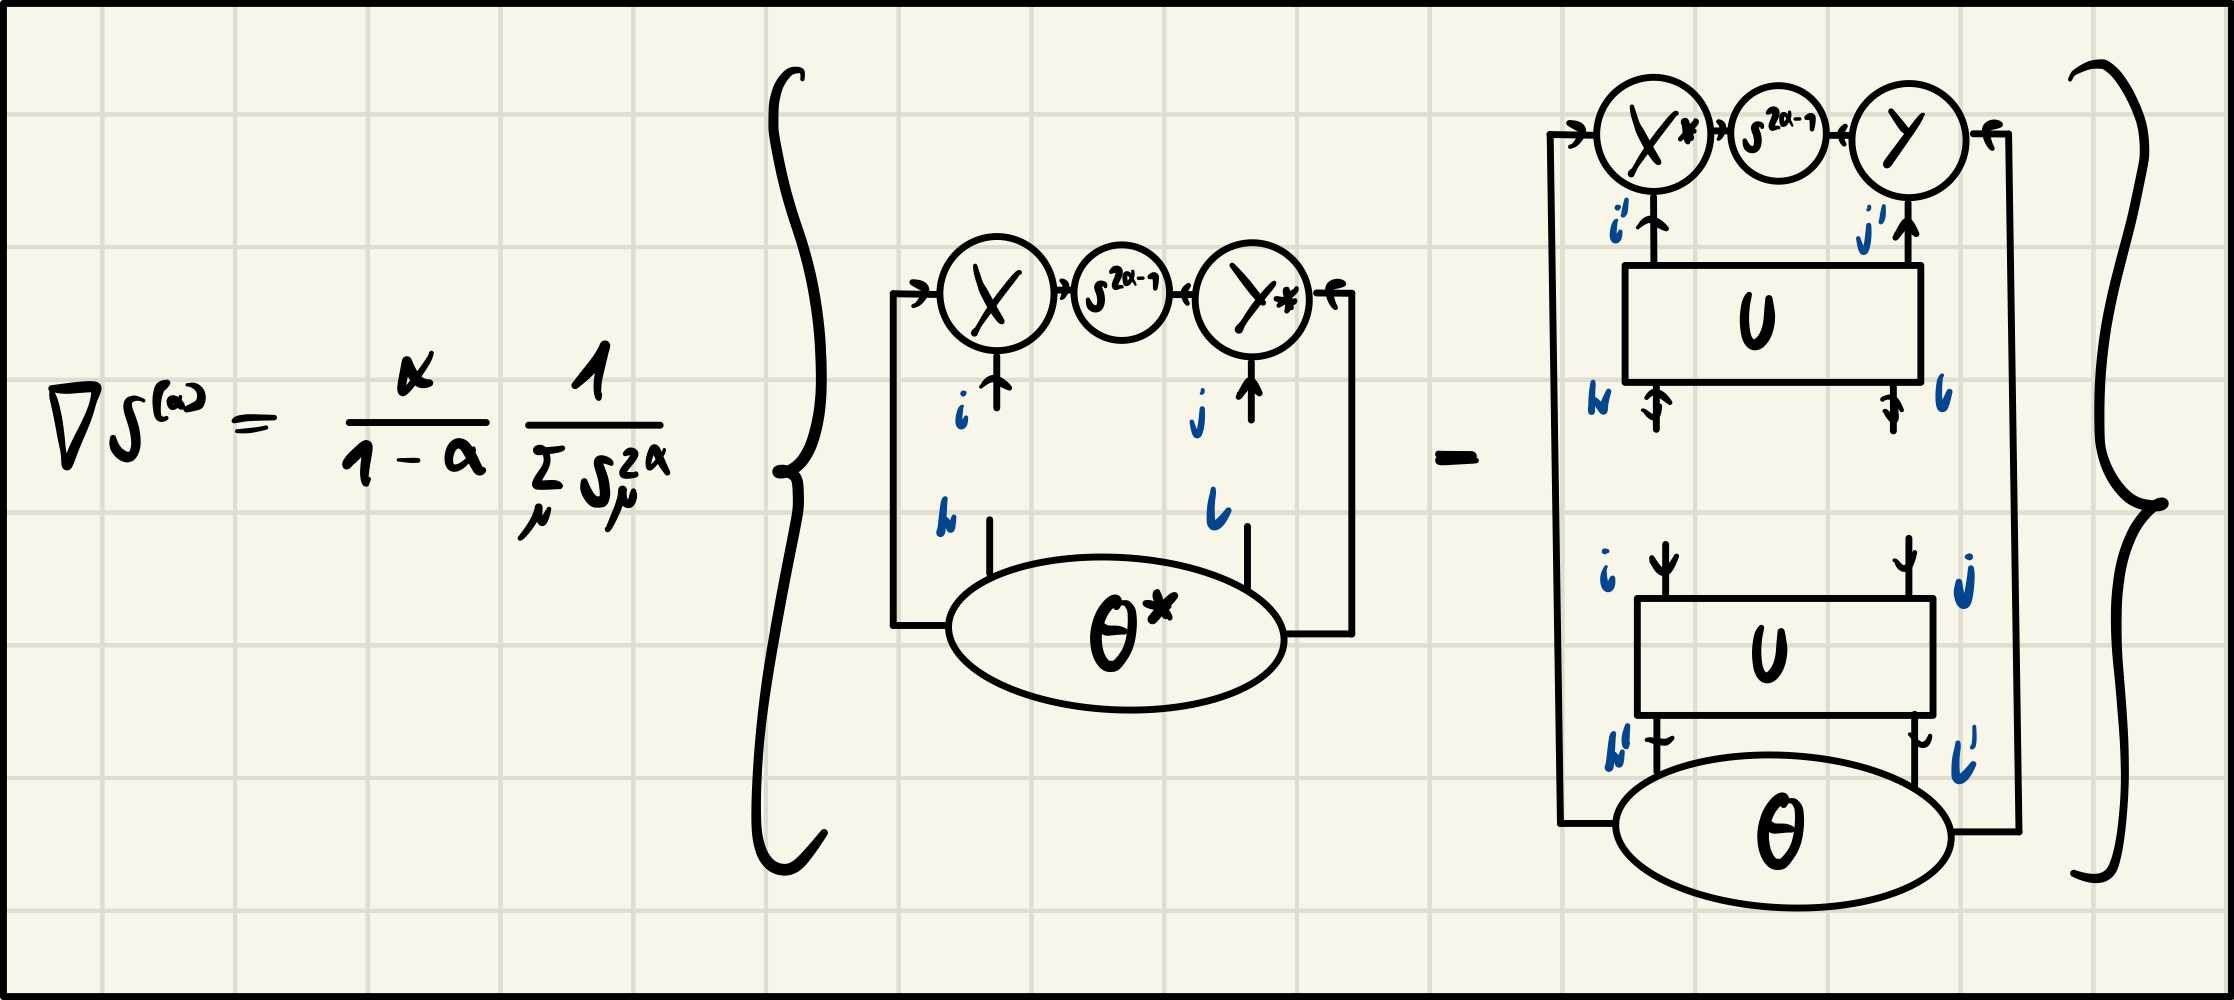 ∇S^(α) = α/(1-α) 1/(Σ_μ S_μ^{2α}) { } - { }
X S^{2α-1} Y*
i j
k l
θ*
X* S^{2α-1} Y
i' j'
U
k l
i j
U
k' l'
θ